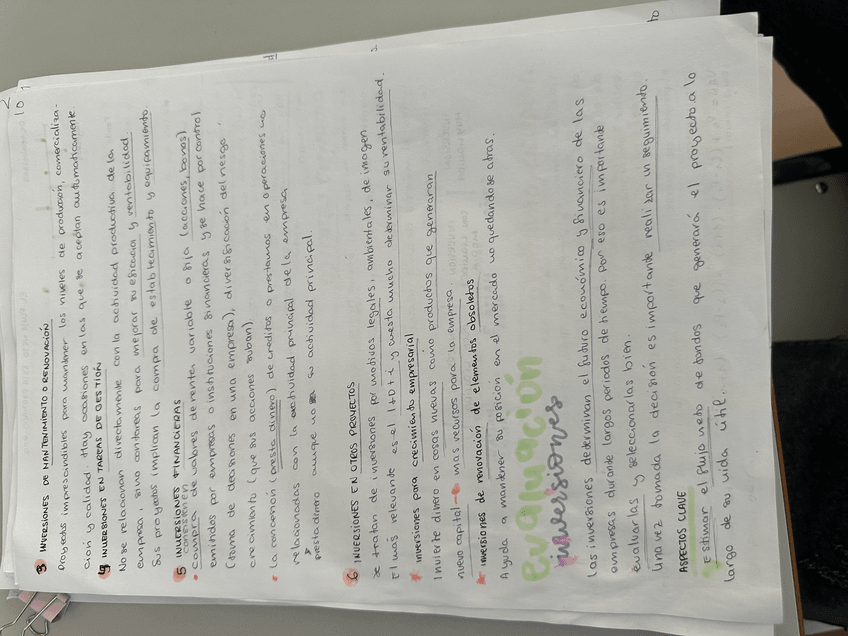 3 INVERSIONES DE MANTENIMIENTO O RENOVACIÓN
Proyectos imprescindibles para mantener los niveles de producción, comercializa-
ción y calidad. Hay ocasiones en las que se aceptan automáticamente.
4 INVERSIONES EN TAREAS DE GESTIÓN
No se relacionan directamente con la actividad productiva de la
empresa, sino con tareas para mejorar su eficacia y rentabilidad.
Sus proyectos implican la compra de establecimiento y equipamiento.
5 INVERSIONES FINANCIERAS
consisten en
• compra de valores de renta variable o fija (acciones, bonos)
emitidos por empresas o instituciones financieras y se hace por control
(toma de decisiones en una empresa), diversificación del riesgo,
crecimiento (que sus acciones suban)
• La concesión (presta dinero) de creditos o prestamos en operaciones no
relacionadas con la actividad principal de la empresa
presta dinero aunque no su actividad principal.
6 INVERSIONES EN OTROS PROYECTOS
Se tratan de inversiones por motivos legales, ambientales, de imagen
El más relevante es el I+D+i y cuesta mucho determinar su rentabilidad.
* Inversiones para crecimiento empresarial
Invierte dinero en cosas nuevas como productos que generaran
nuevo capital → mas recursos para la empresa
* Inversiones de renovación de elementos obsoletos
Ayuda a mantener su posición en el mercado no quedandose atras.
evaluación
inversiones
Las inversiones determinan el futuro económico y financiero de las
empresas durante largos periodos de tiempo. Por eso es importante
evaluarlas y seleccionarlas bien.
Una vez tomada la decisión es importante realizar un seguimiento.
ASPECTOS CLAVE
Estimar el flujo neto de fondos que generará el proyecto a lo
largo de su vida útil.